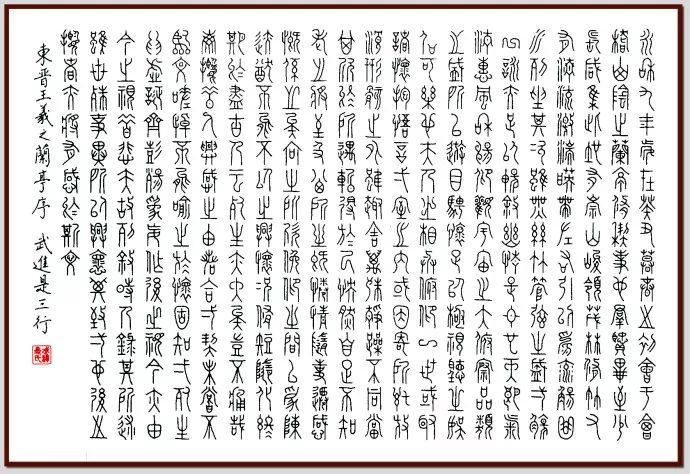 永和九年歲在癸丑暮春之初會于會
稽山陰之蘭亭脩稧事也羣賢畢至少
長咸集此地有崇山峻領茂林脩竹又
有清流激湍暎帶左右引以爲流觴曲
水列坐其次雖無絲竹管弦之盛一觴
一詠亦足以暢敘幽情是日也天朗氣
清惠風和暢仰觀宇宙之大俯察品類
之盛所以遊目騁懷足以極視聽之娛
信可樂也夫人之相與俯仰一世或取
諸懷抱悟言一室之內或因寄所託放
浪形骸之外雖趣舍萬殊靜躁不同當
其欣於所遇暫得於己怏然自足不知
老之將至及其所之既惓情隨事遷感
慨係之矣向之所欣俛仰之間以爲陳
迹猶不能不以之興懷況脩短隨化終
期於盡古人云死生亦大矣豈不痛哉
每攬昔人興感之由若合一契未嘗不
臨文嗟悼不能喻之於懷固知一死生
爲虛誕齊彭殤爲妄作後之視今亦由
今之視昔悲夫故列敘時人錄其所述
雖世殊事異所以興懷其致一也後之
攬者亦將有感於斯文
東晉王羲之蘭亭序 武進是三行